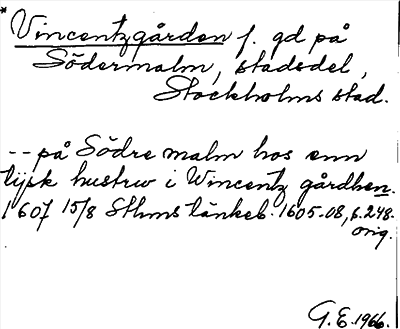 * Vincentzgården f. gd på
Södermalm, stadsdel,
Stockholms stad.
-- på Södre malm hos enn
tysk hustru i Wincentz gårdhen.
1607 15/8 Sthms tänkeb. 1605-08, s. 248.
orig.
G. E. 1966.